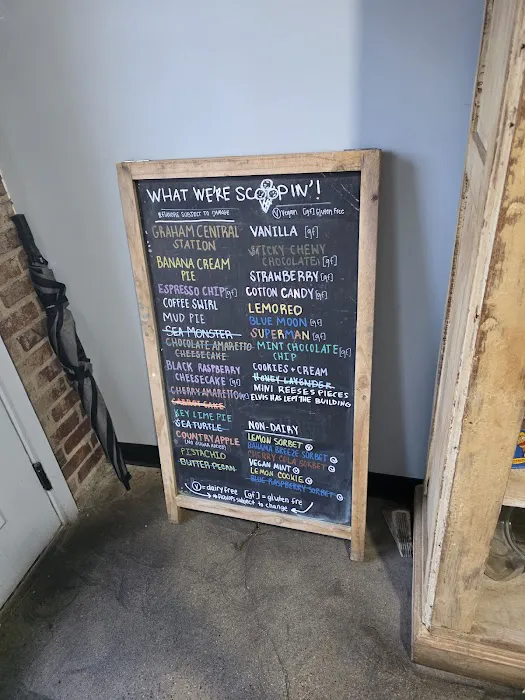 WHAT WE'RE SCOOPIN'!
FLAVORS SUBJECT TO CHANGE
(V) Vegan [gf] Gluten Free
GRAHAM CENTRAL
STATION
BANANA CREAM
PIE
ESPRESSO CHIP [gf]
COFFEE SWIRL
MUD PIE
SEA MONSTER
CHOCOLATE AMARETTO
CHEESECAKE
BLACK RASPBERRY
CHEESECAKE [gf]
CHERRY AMARETTO [gf]
CARROT CAKE
KEY LIME PIE
SEA TURTLE
COUNTRY APPLE
(NO SUGAR ADDED)
PISTACHIO
BUTTER PECAN
VANILLA [gf]
STICKY CHEWY
CHOCOLATE [gf]
STRAWBERRY [gf]
COTTON CANDY [gf]
LEMOREO
BLUE MOON [gf]
SUPERMAN [gf]
MINT CHOCOLATE [gf]
CHIP
COOKIES + CREAM
HONEY LAVENDER
MINI REESES PIECES
ELVIS HAS LEFT THE BUILDING
NON-DAIRY
LEMON SORBET (V)
BAHAMA BREEZE SORBET (V)
CHERRY COLA SORBET (V)
VEGAN MINT (V)
LEMON COOKIE (V)
BLUE RASPBERRY SORBET (V)
(V) = dairy free [gf] = gluten fre
subject to change